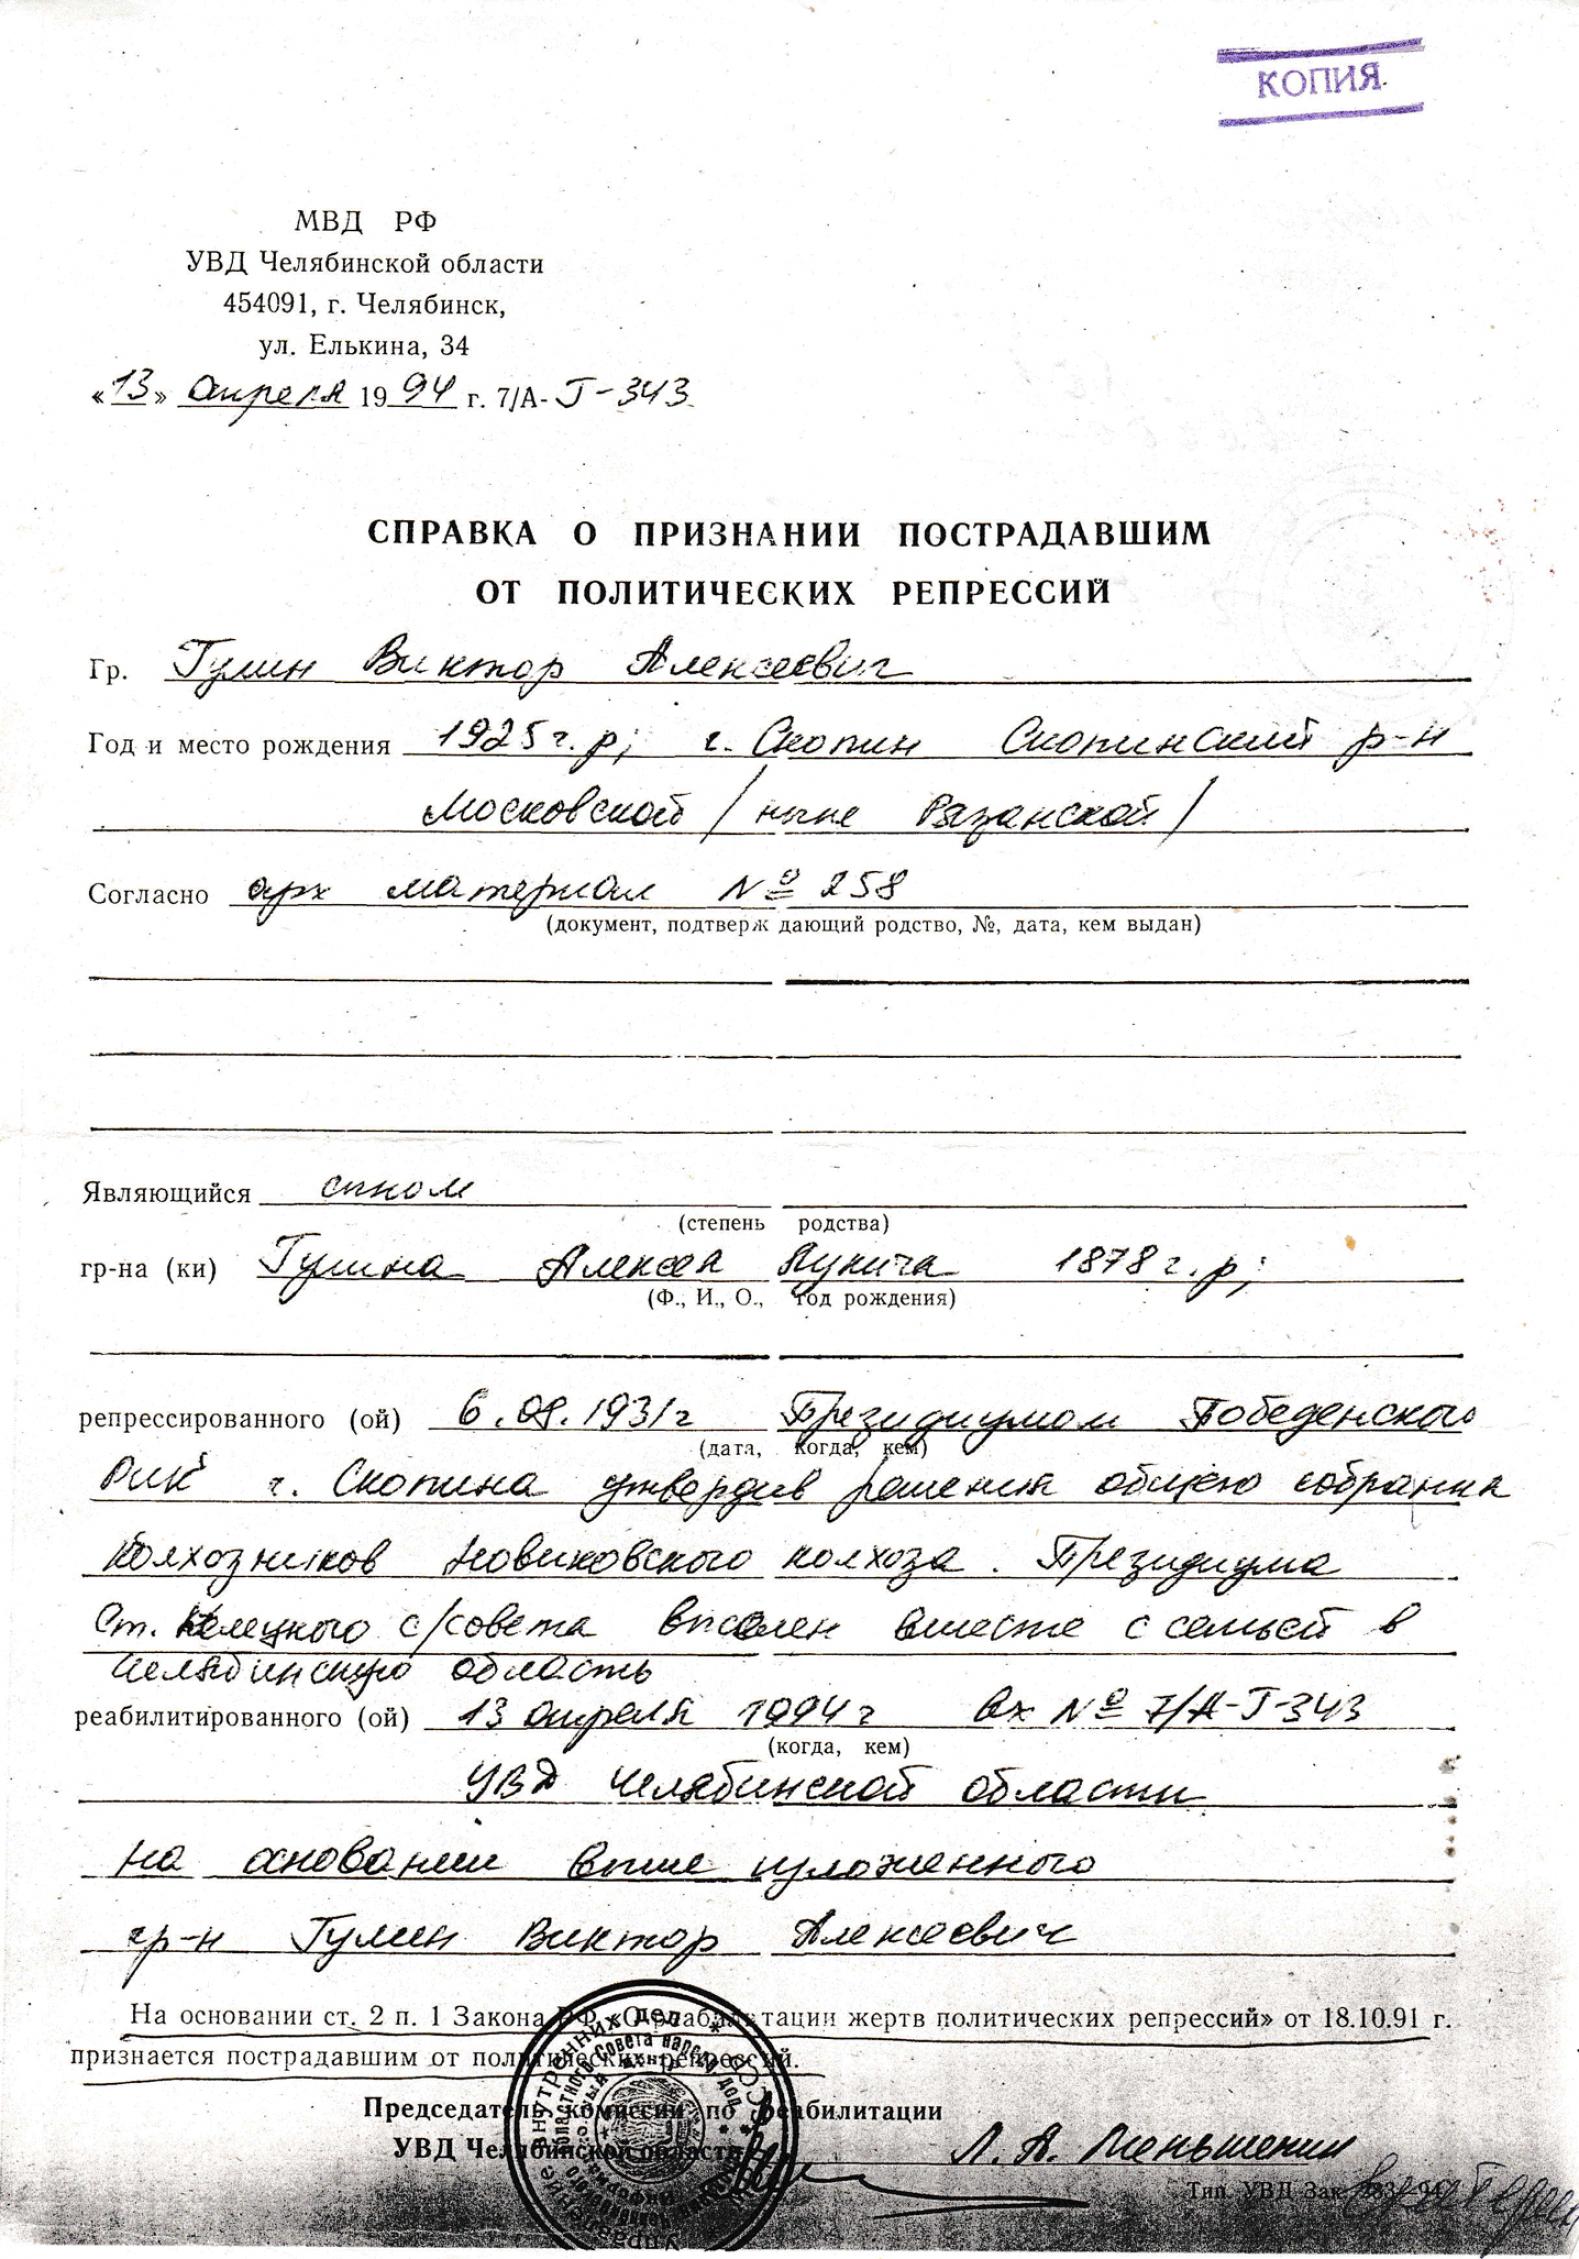 КОПИЯ.
МВД РФ
УВД Челябинской области
454091, г. Челябинск,
ул. Елькина, 34
«13» апреля 1994 г. 7/А-Г-343
СПРАВКА О ПРИЗНАНИИ ПОСТРАДАВШИМ
ОТ ПОЛИТИЧЕСКИХ РЕПРЕССИЙ
Гр. Гулин Виктор Алексеевич
Год и место рождения 1925 г.р; г. Скопин Скопинский р-н
Московской / ныне Рязанской /
Согласно арх материал № 258
(документ, подтверждающий родство, №, дата, кем выдан)
Являющийся сыном
(степень родства)
гр-на (ки) Гулина Алексея Лукича 1878 г.р;
(Ф., И., О., год рождения)
репрессированного (ой) 6.08.1931г Президиумом Победенского
(дата, когда, кем)
РИК г. Скопина утвердив решения общего собрания
колхозников Новиковского колхоза. Президиума
Ст. Келецкого с/совета выселен вместе с семьей в
Челябинскую область
реабилитированного (ой) 13 апреля 1994г Вх № 7/А-Г-343
(когда, кем)
УВД Челябинской области
на основании выше изложенного
гр-н Гулин Виктор Алексеевич
На основании ст. 2 п. 1 Закона РФ «О реабилитации жертв политических репрессий» от 18.10.91 г.
признается пострадавшим от политических репрессий.
Председатель комиссии по реабилитации
УВД Челябинской области Л. А. Меньшенин
Тип. УВД Зак.